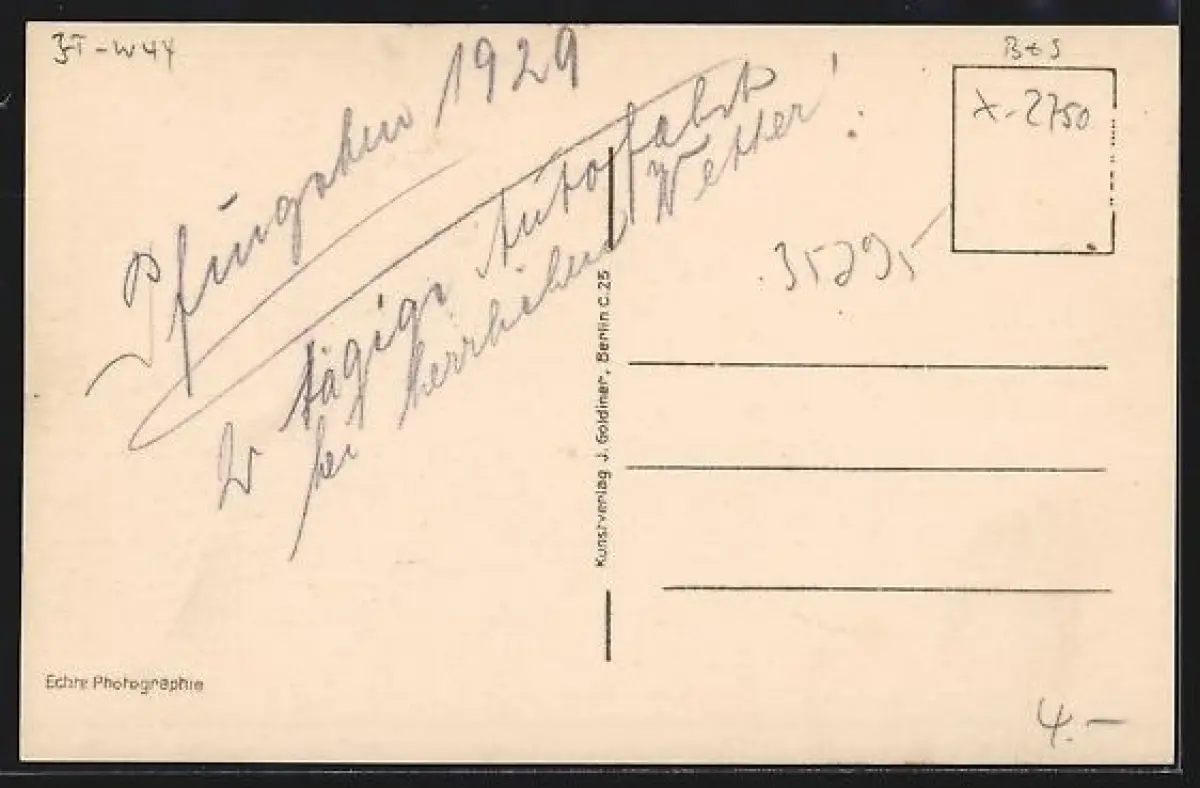 3T-W44
Pfingsten 1929
2 tägige Autofahrt
bei herrlichem Wetter!
BES
X-2750
35295
Kunstverlag J. Goldiner, Berlin C.25
Echte Photographie
4.-